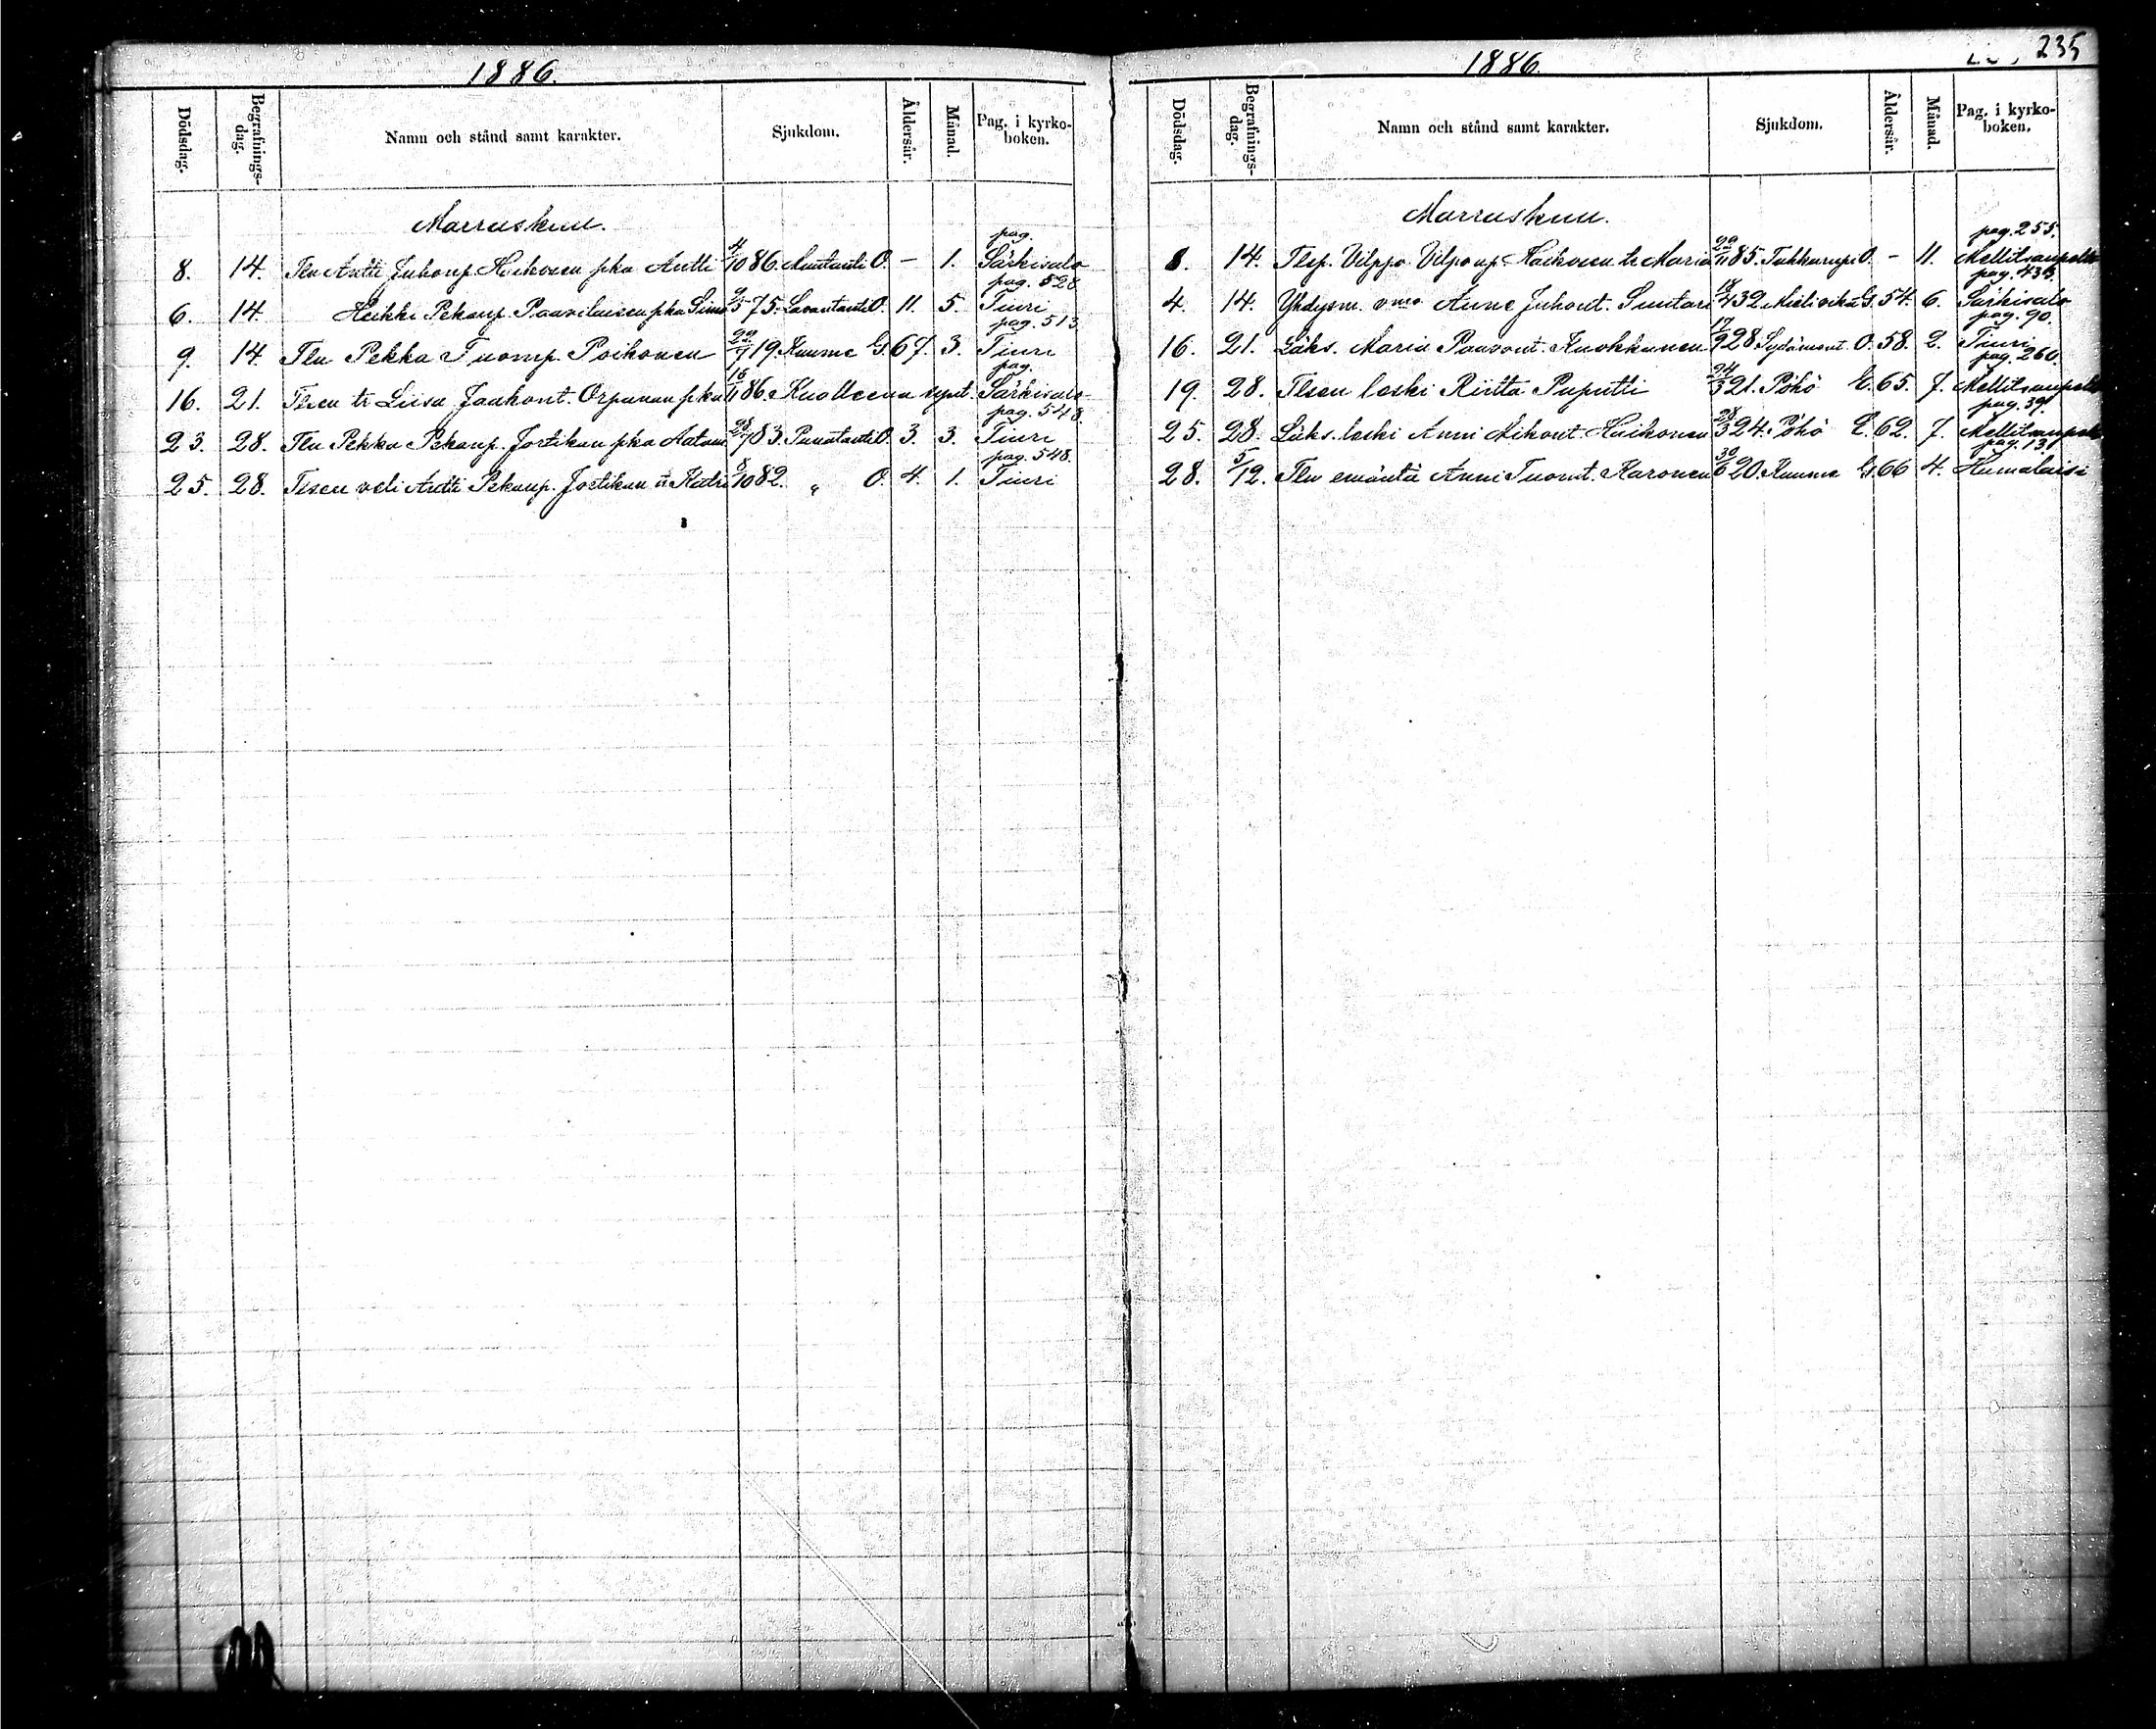 1886.
Dödsdag. Begrafnings-dag. Namn och stånd samt karakter. Sjukdom. Åldersår. Månad. Pag. i kyrko-boken.
Marraskuu.
pag.
8. 14. Tln Antti Juhonp. pka Antti 4/10 86. O. – 1. Särkisalo
pag. 528
6. 14. Heikki Pekanp. Paavilaisen pka Simo 75. Lavantauti O. 11. 5. Tiuri
pag. 513
9. 14. Tln Pekka Tuomp. Poikonen 29/7 19. Kuume G. 67. 3. Tiuri
pag.
16. 21. Tlsen tr Liisa Jaakont. Orpanan pka 86. Kuolleena synt. Särkisalo
pag. 548
23. 28. Tln Pekka Pekanp. Jortikan pka Aatam 28/7 83. Punatauti O. 3. 3. Tiuri
pag. 548.
25. 28. Tlsen veli Antti Pekanp. Jortikan tr Katri 8/10 82. „ O. 4. 1. Tiuri
1886.
235
Dödsdag. Begrafnings-dag. Namn och stånd samt karakter. Sjukdom. Åldersår. Månad. Pag. i kyrko-boken.
Marraskuu.
pag. 255.
8. 14. Tlsp. Vilppo Vilponp. tr Maria 29/11 85. Tuhkarupi O. – 11. Mellitsanpelto
pag. 436
4. 14. Yhdysm. vmo Anne Juhont. Suutari 18/4 32. G. 54. 6. Särkisalo
pag. 90.
16. 21. Läks. Maria Paavont. Kuokkanen 17/9 28. Sydäment. O. 58. 2. Tiuri
pag. 260
19. 28. Tlsen leski Riitta Puputti 24/3 21. Pöhö E. 65. 7. Mellitsanpelto
pag. 39.
25. 28. Läks. leski Anni Mikont. Huikonen 28/3 24. Pöhö E. 62. 7. Mellitsanpelto
pag. 131
28. 5/12. Tln emäntä Anni Tuomt. Karonen 30/6 20. Kuume G. 66 4. Humalaisi